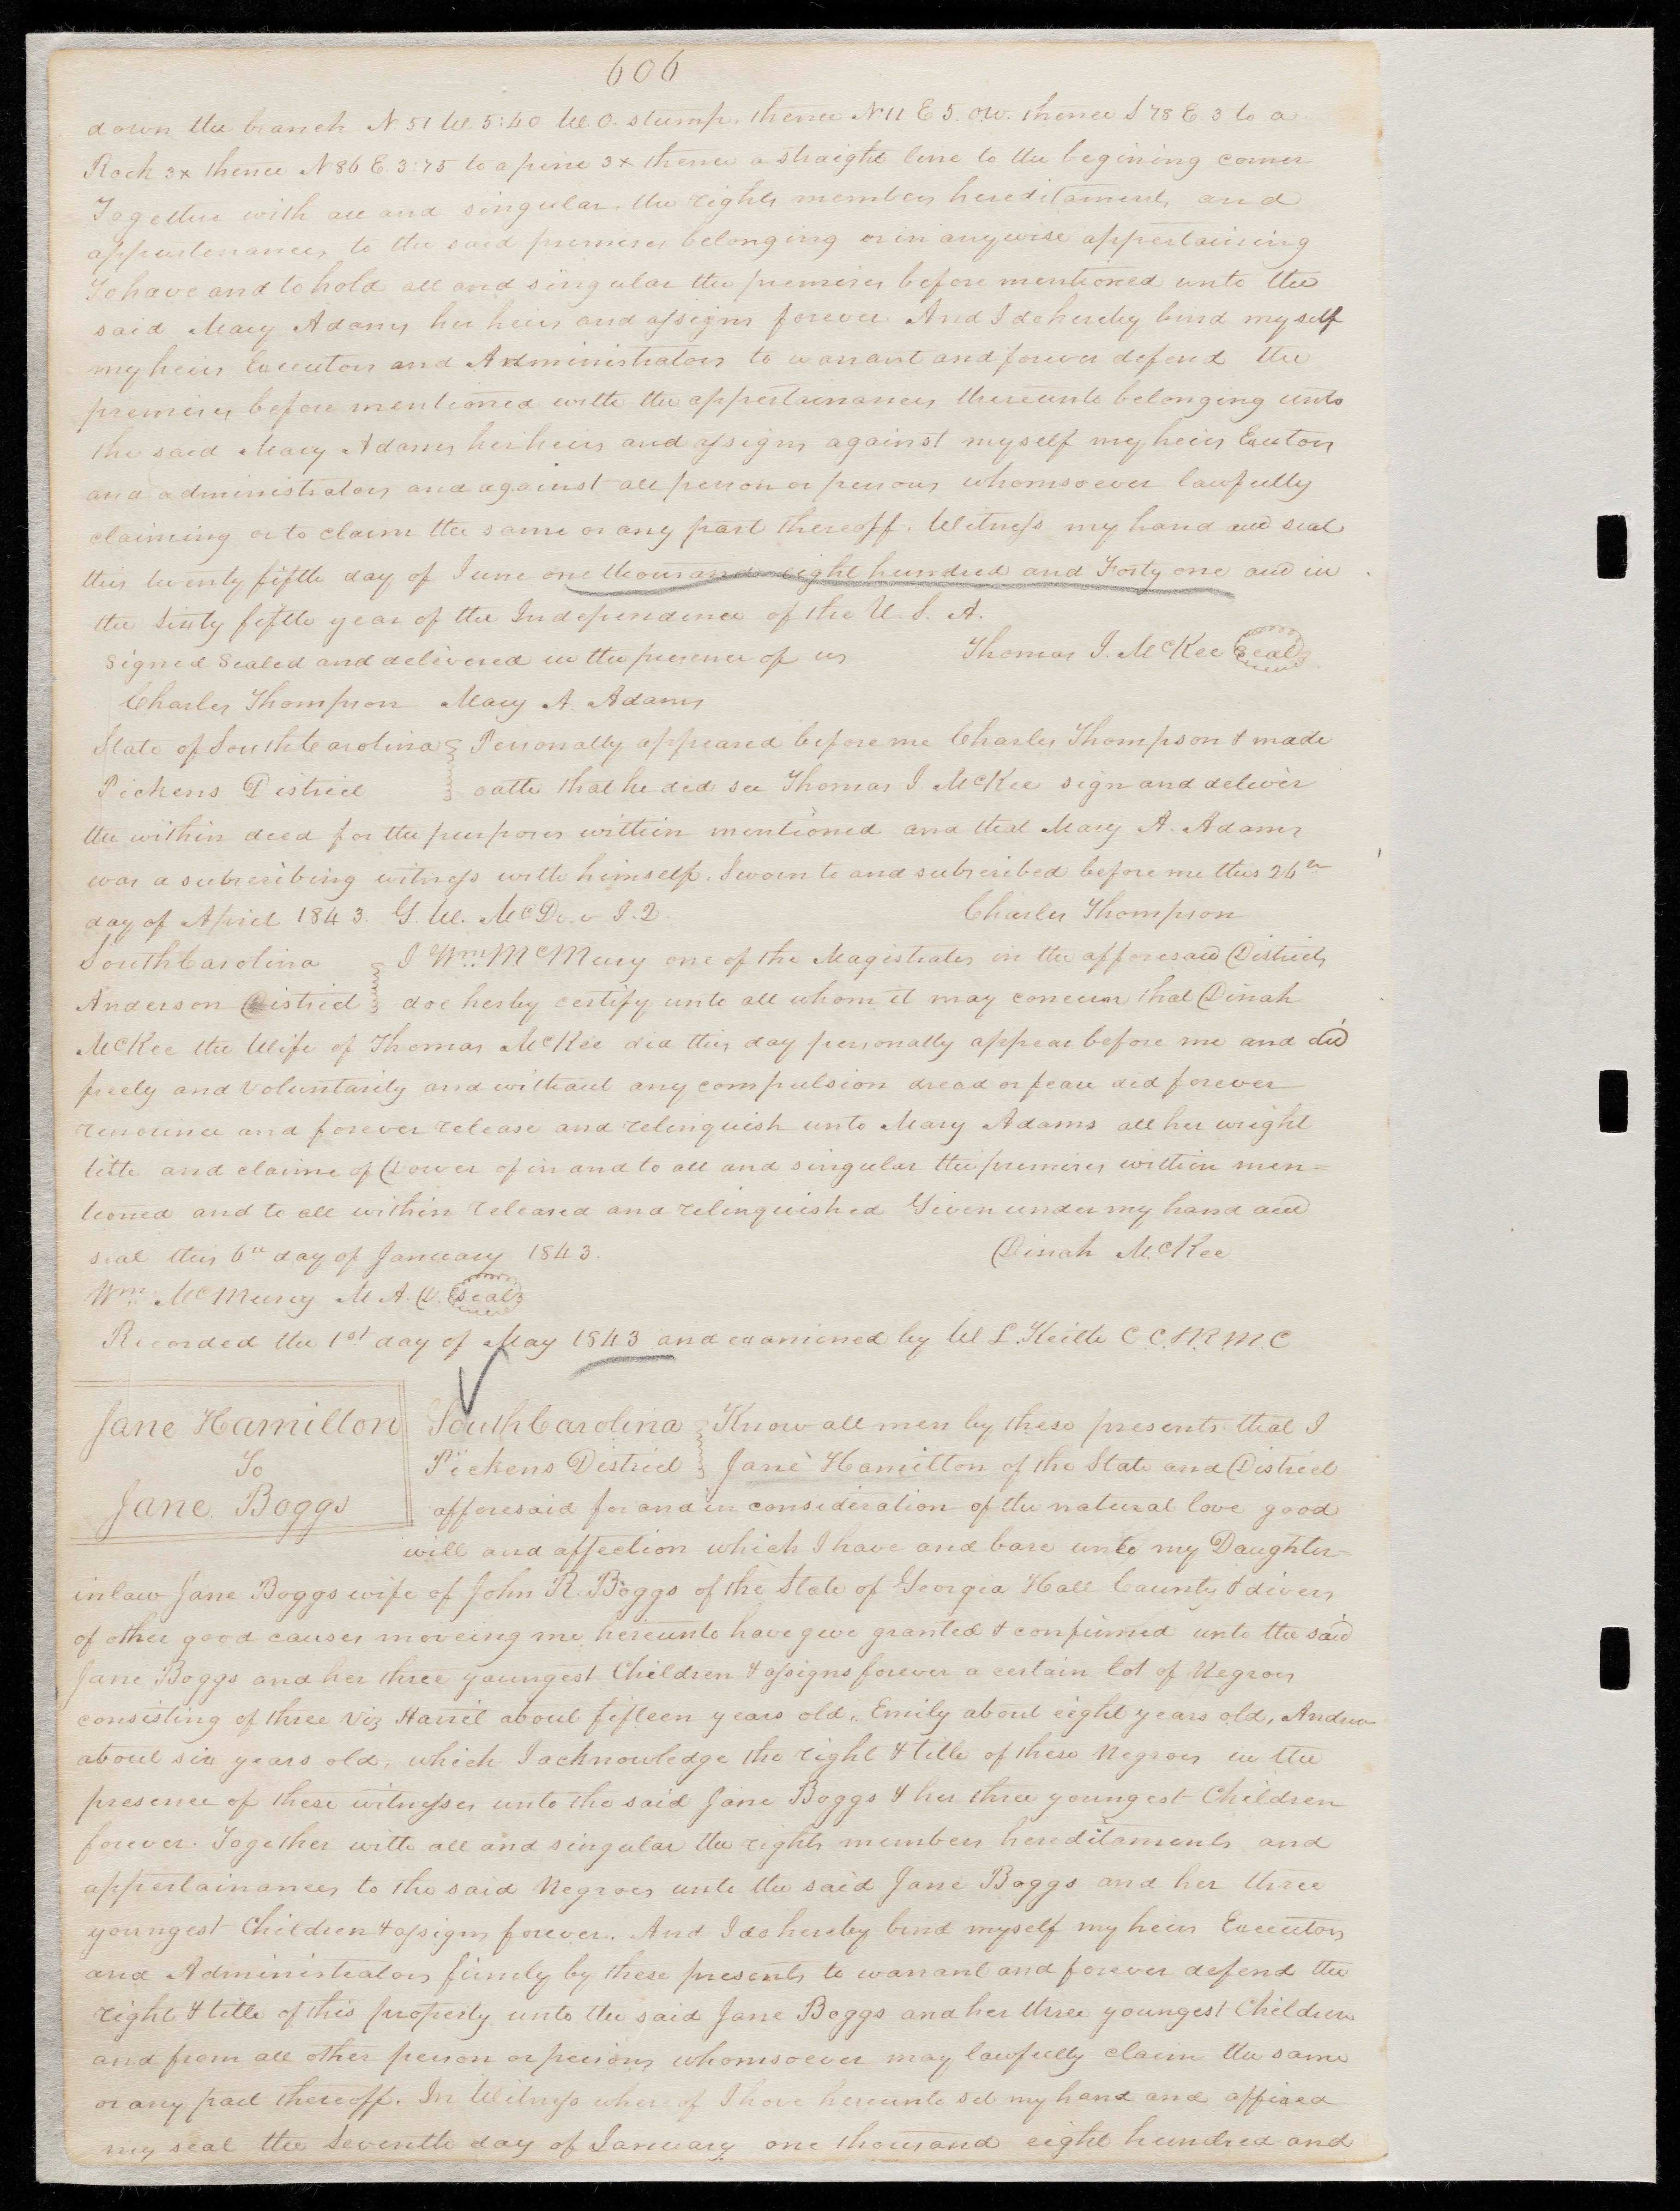 606
down the branch N. 51 W. 5:40 W O. stump. thence N 11 E 5. O.W. thence S 78 E 3 to a
Rock 3x thence N 86 E 3:75 to a pine 3x thence a straight line to the begining corner
Together with all and singular. the rights members hereditaments and
appurtenances to the said premises belonging or in anywise appertaining
To have and to hold all and singular the premises before mentioned unto the
said Mary Adams her heirs and assigns forever. And I do hereby bind myself
my heirs Executors and Administrators to warrant and forever defend the
premises before mentioned with the appertainances thereunto belonging unto
the said Mary Adams her heirs and assigns against myself my heirs Exutors
and administrators and against all person or persons whomsoever lawfully
claiming or to claim the same or any part thereoff. Witness my hand and seal
this twenty fifth day of June one thousand eight hundred and Forty one and in
the Sixty fifth year of the Independence of the U. S. A.
Signed Sealed and delivered in the presence of us Thomas J. McKee Seal
Charles Thompson Mary A. Adams
State of South Carolina Personally appeared before me Charles Thompson & made
Pickens District oath that he did see Thomas J. McKee sign and deliver
the within deed for the purposes within mentioned and that Mary A. Adams
was a subscribing witness with himself. Sworn to and subscribed before me this 26th
day of April 1843. G. W. J.2. Charles Thompson
South Carolina I Wm McMurry one of the Magistrates in the afforesaid District
Anderson District doe herby certify unto all whom it may concern that Dinah
McKee the Wife of Thomas McKee did this day personally appear before me and did
freely and voluntarily and without any compulsion dread or fear did forever
renounce and forever release and relinquish unto Mary Adams all her wright
title and claime of Dower of in and to all and singular the premises within men=
tioned and to all within released and relinquished Given under my hand and
seal this 6th day of January 1843. Dinah McKee
Wm McMurry M. A. D. Seal
Recorded the 1st day of May 1843 and examined by W L. Keith C C. & R. M. C
Jane Hamilton
To
Jane Boggs
South Carolina Know all men by these presents that I
Pickens District Jane Hamilton of the State and District
afforesaid for and in consideration of the natural love good
will and affection which I have and bare unto my Daughter=
inlaw Jane Boggs wife of John R. Boggs of the State of Georgia Hall County & divers
of other good causes moveing me hereunto have give granted & confirmed unto the said
Jane Boggs and her three youngest Children & assigns forever a certain lot of Negroes
consisting of three Viz Harriet about fifteen years old, Emily about eight years old, Andrew
about six years old, which I acknowledge the right & title of these Negroes in the
presence of these witnesses unto the said Jane Boggs & her three youngest Children
forever. Together with all and singular the rights members hereditaments and
appertainances to the said Negroes unto the said Jane Boggs and her three
youngest Children & assigns forever. And I do hereby bind myself my heirs Executors
and Administrators firmly by these presents to warrant and forever defend the
right & title of this property unto the said Jane Boggs and her three youngest Children
and from all other person or persons whomsoever may lawfully claim the same
or any part thereoff. In Witness whereof I have hereunto set my hand and affixed
my seal the Seventh day of January one thousand eight hundred and